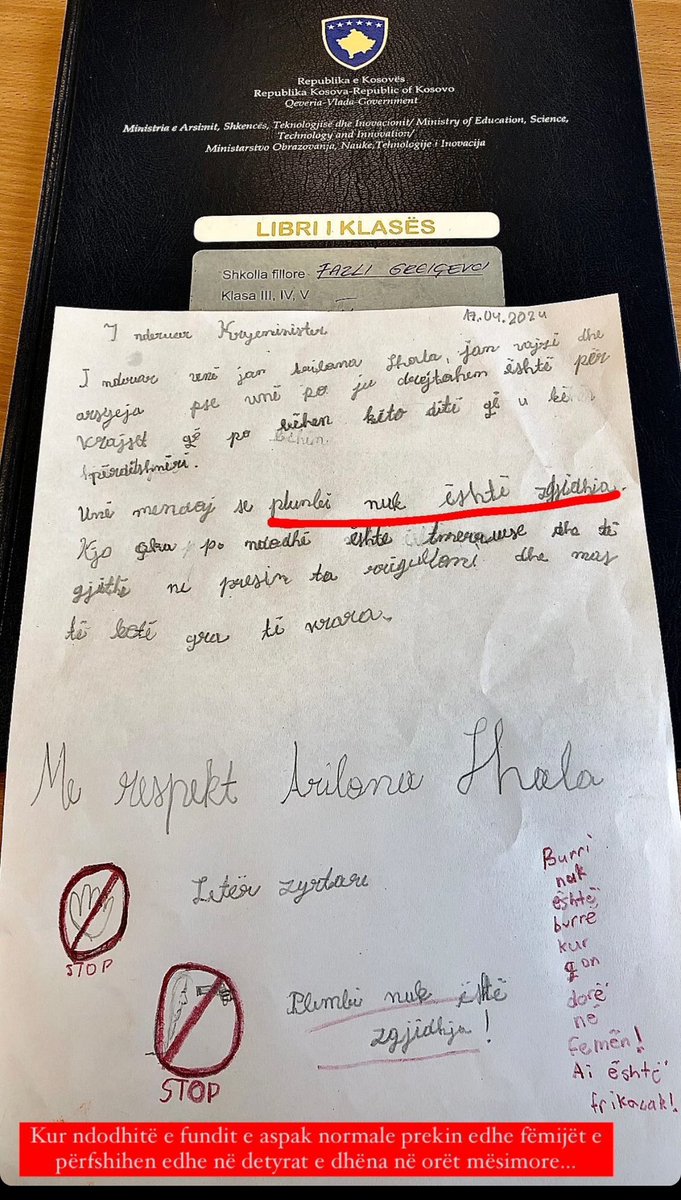 Republika e Kosovës
Republika Kosova-Republic of Kosovo
Qeveria-Vlada-Government
Ministria e Arsimit, Shkencës, Teknologjisë dhe Inovacionit/ Ministry of Education, Science,
Technology and Innovation/
Ministarstvo Obrazovanja, Nauke,Tehnologije i Inovacija
LIBRI I KLASËS
Shkolla fillore FAZLI GREIÇEVCI
Klasa III, IV, V
17.04.2024
I nderuar Kryeminister
I nderuar unë jam Arilona Shala, jam vajzë dhe
arsyeja pse unë po ju drejtohem është për
vrajset që po bëhen këto ditë që u bënë
përditshmëri.
Unë mendoj se plumbi nuk është zgjidhja.
Kjo çka po ndodhë është tmerruse dhe të
gjithë ne presim ta rregulloni dhe mos
të ketë gra të vrara.
Me respekt Arilona Shala
STOP
Letër zyrtare
STOP
Plumbi nuk është
zgjidhja!
Burri
nuk
është
burrë
kur
çon
dorë
në
Femën!
Ai është
frikacak!
Kur ndodhitë e fundit e aspak normale prekin edhe fëmijët e
përfshihen edhe në detyrat e dhëna në orët mësimore...